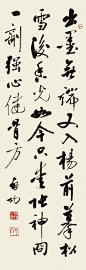 出墨無端又入楊前摹松
雪後香光如今只愛張神冏
一劑強心健骨方
啟功